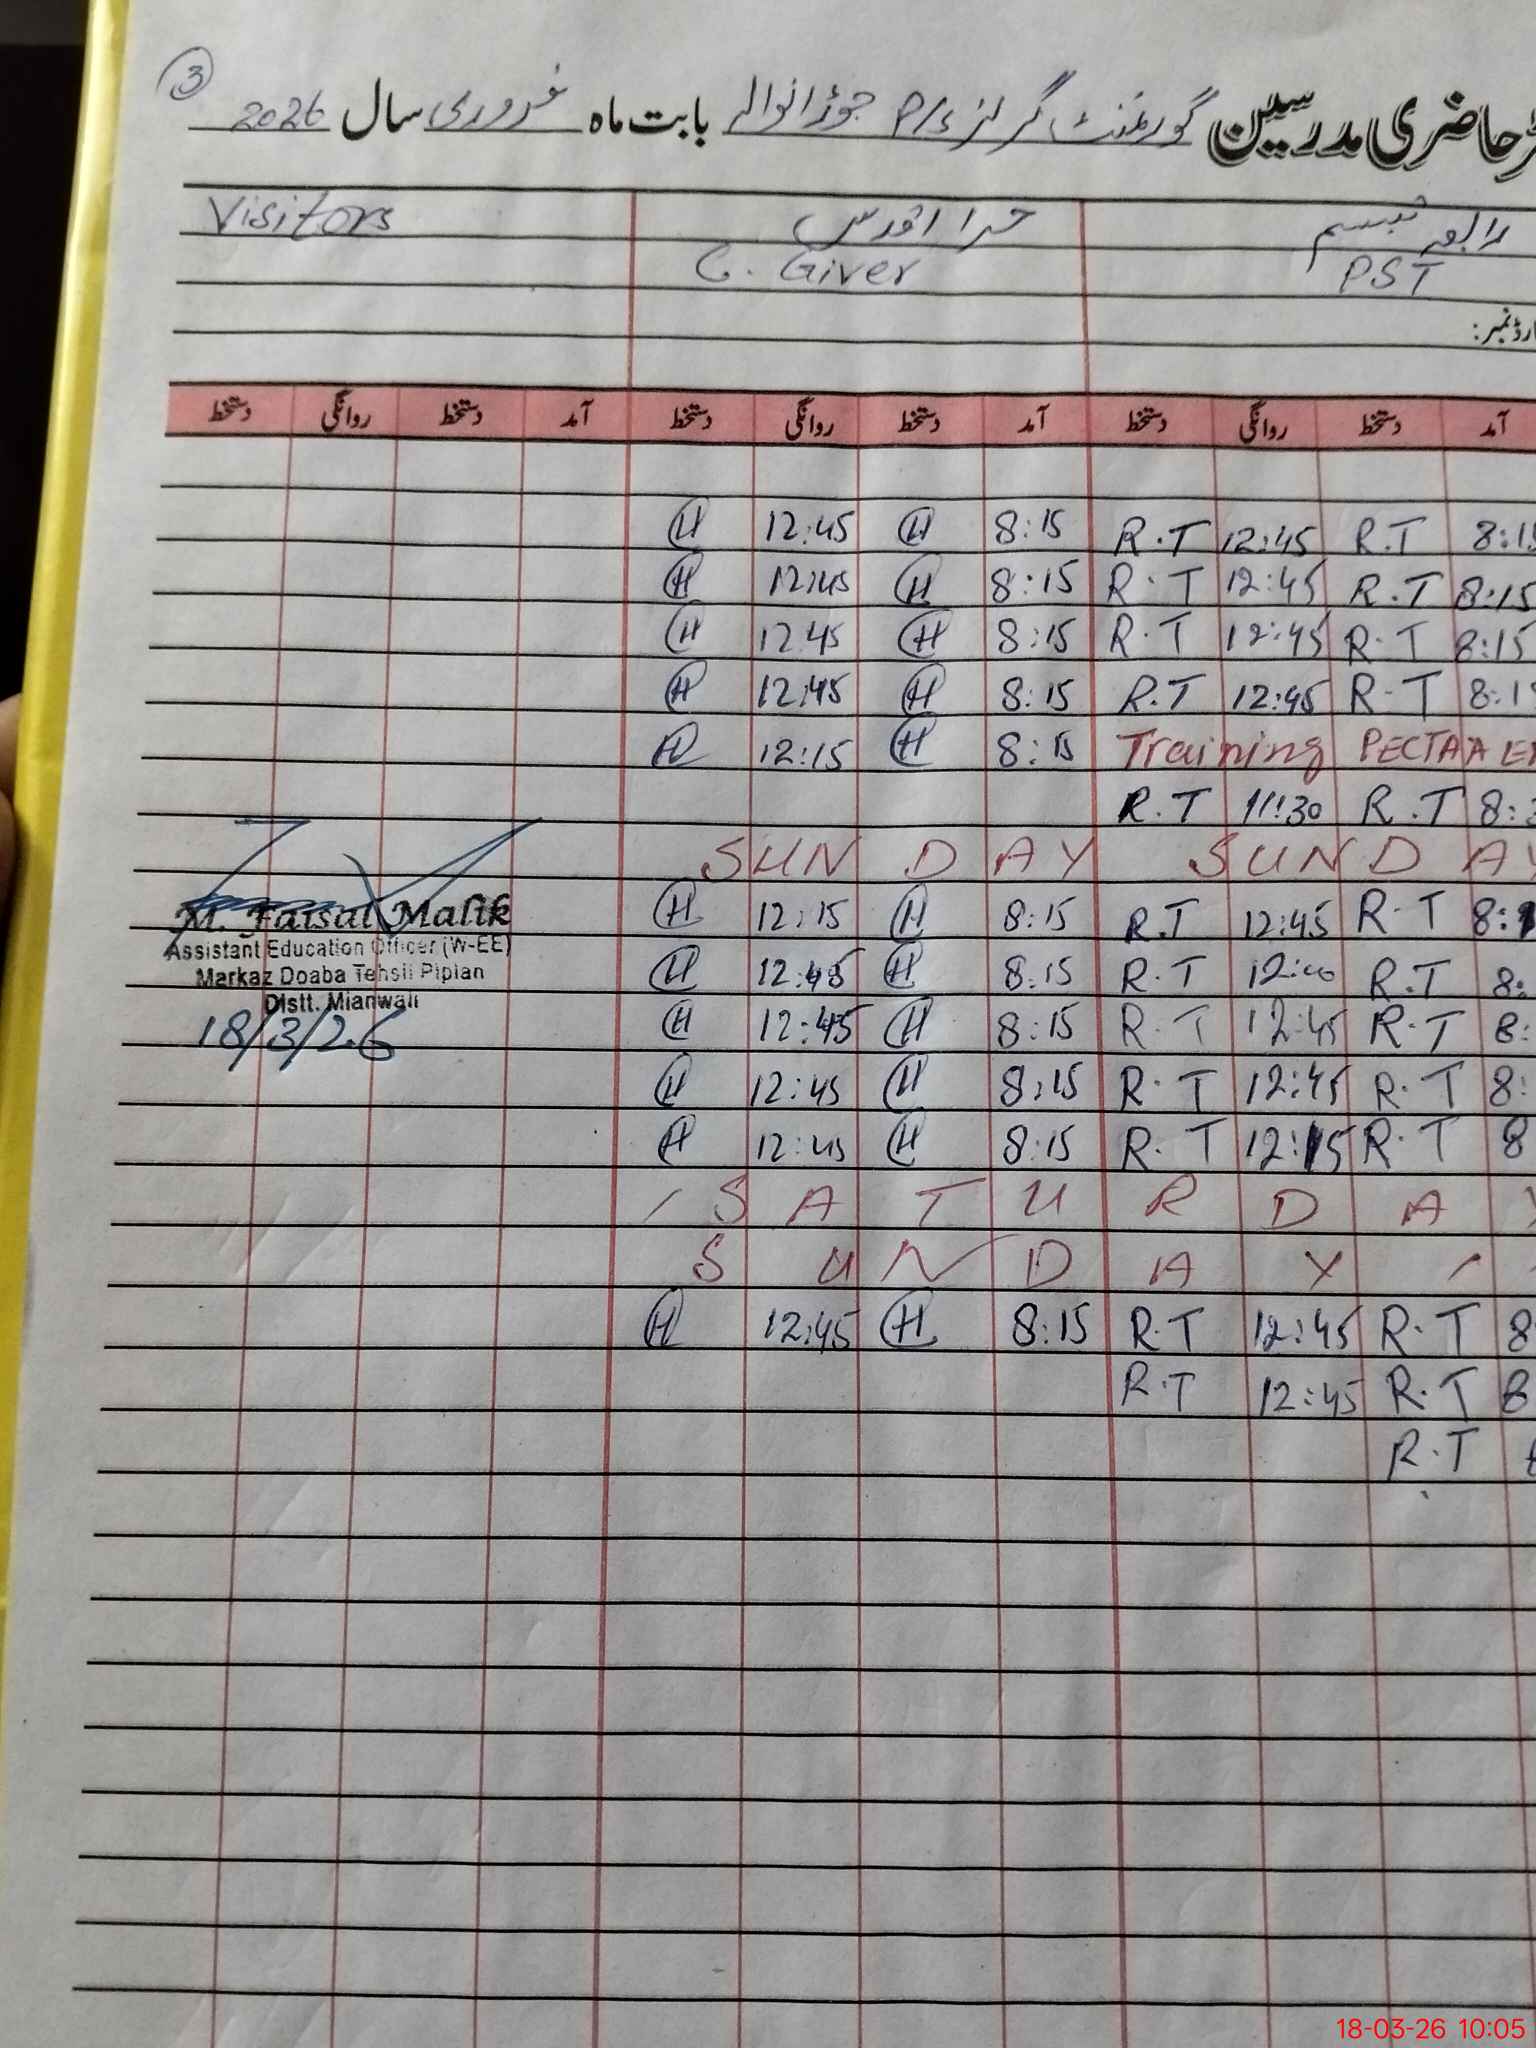 3
حاضری مدرسین گورنمنٹ گرلز P/S جوڑانوالہ بابت ماہ فروری سال 2026
تبسم حرا اقدس Visitors
PST C. Giver
آمد دستخط روانگی دستخط آمد دستخط روانگی دستخط آمد دستخط روانگی دستخط
H 12:45 H 8:15 R.T 12:45 R.T 8:15
H 12:45 H 8:15 R.T 12:45 R.T 8:15
H 12 45 H 8:15 R.T 12:45 R.T 8:15
H 12:45 H 8:15 R.T 12:45 R.T 8:15
H 12:15 H 8:15 Training PECTAA
R.T 11:30 R.T 8:
SUNDAY SUNDAY
H 12:15 H 8:15 R.T 12:45 R.T 8:
H 12:45 H 8:15 R.T R.T 8:
H 12:45 H 8:15 R.T 12:45 R.T 8:
H 12:45 H 8:15 R.T 12:45 R.T 8:
H 12:45 H 8:15 R.T 12:15 R.T 8
SATURDAY
SUNDAY
H 12:45 H 8:15 R.T 12:45 R.T 8
R.T 12:45 R.T 8
R.T
M. Faisal Malik
Assistant Education Officer (W-EE)
Markaz Doaba Tehsil Piplan
Distt. Mianwali
18/3/26
18-03-26 10:05